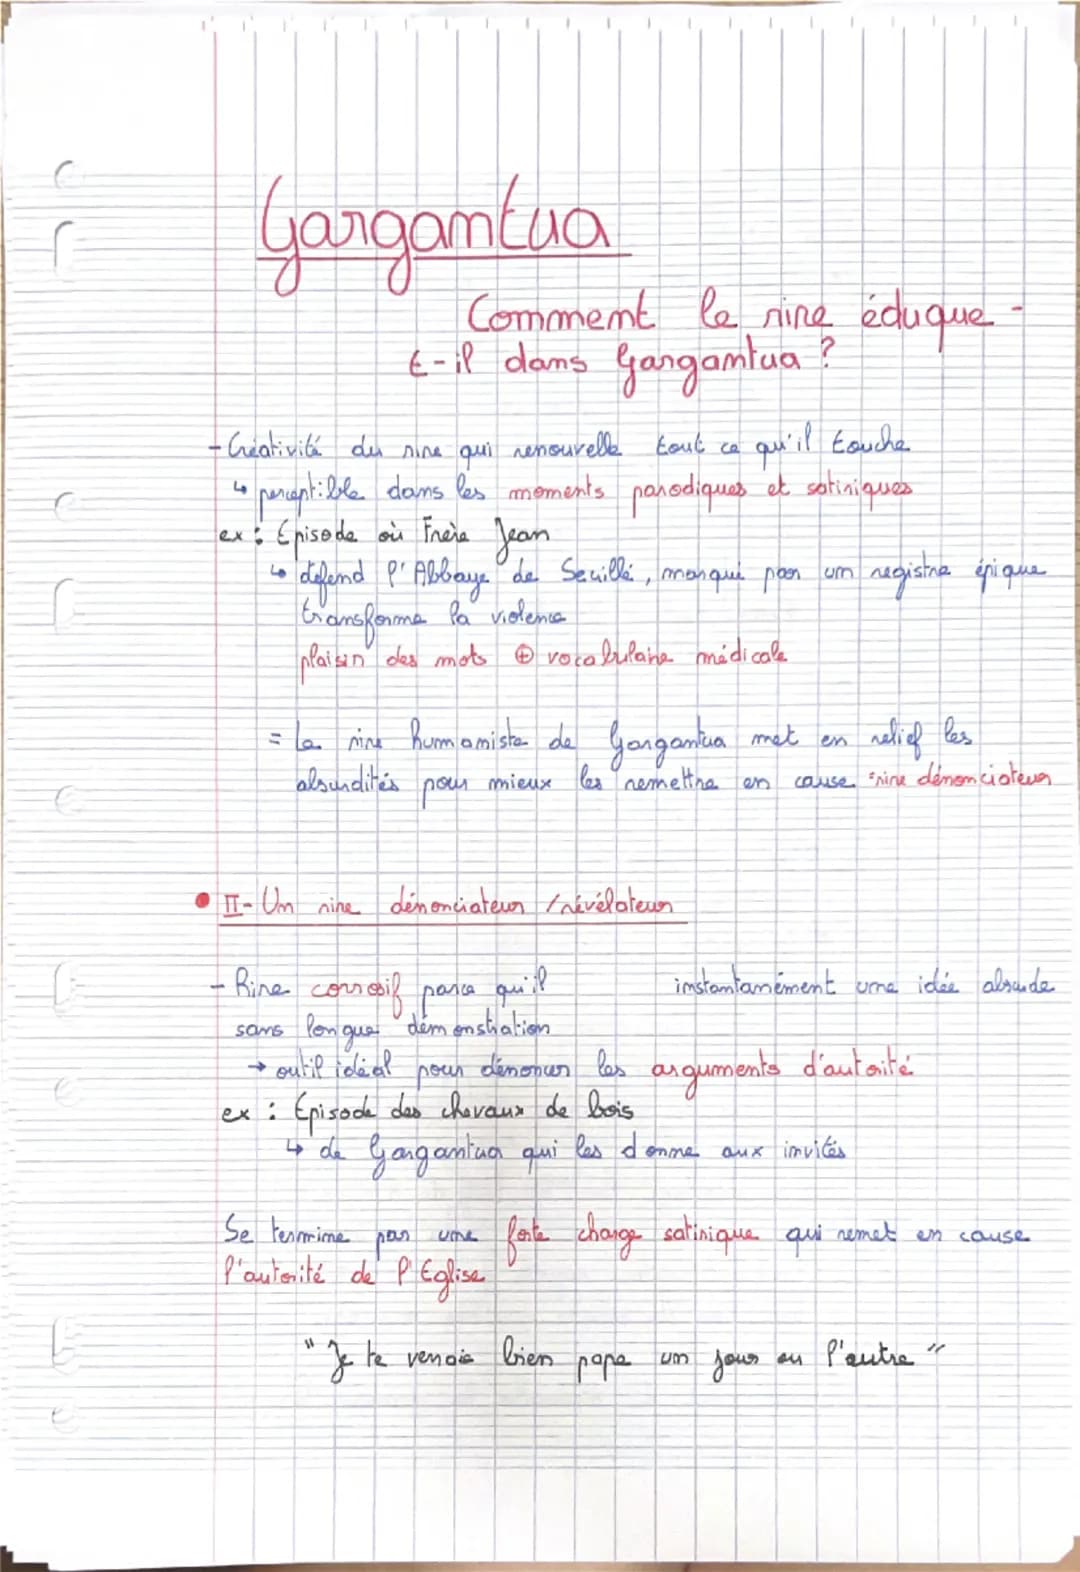 Gargantua
Comment le rire éduque-
t-il dans Gargantua ?
- Créativité du rire qui renouvelle tout ce qu'il touche
↳ perceptible dans les moments parodiques et satiriques
ex : Episode où Frère Jean
↳ défend l'Abbaye de Seuillé, marqué par un registre épique
transforme la violence
plaisir des mots ⊕ vocabulaire médicale
= Le rire humaniste de Gargantua met en relief les
absurdités pour mieux les remettre en cause =rire dénonciateur
• II- Un rire dénonciateur / révélateur
- Rire corrosif parce qu'il instantanément une idée absurde
sans longue démonstration
→ outil idéal pour dénoncer les arguments d'autorité
ex : Episode des chevaux de bois
↳ de Gargantua qui les donne aux invités
Se termine par une forte charge satirique qui remet en cause
l'autorité de l'Eglise
"Je te verrais bien pape un jour ou l'autre"